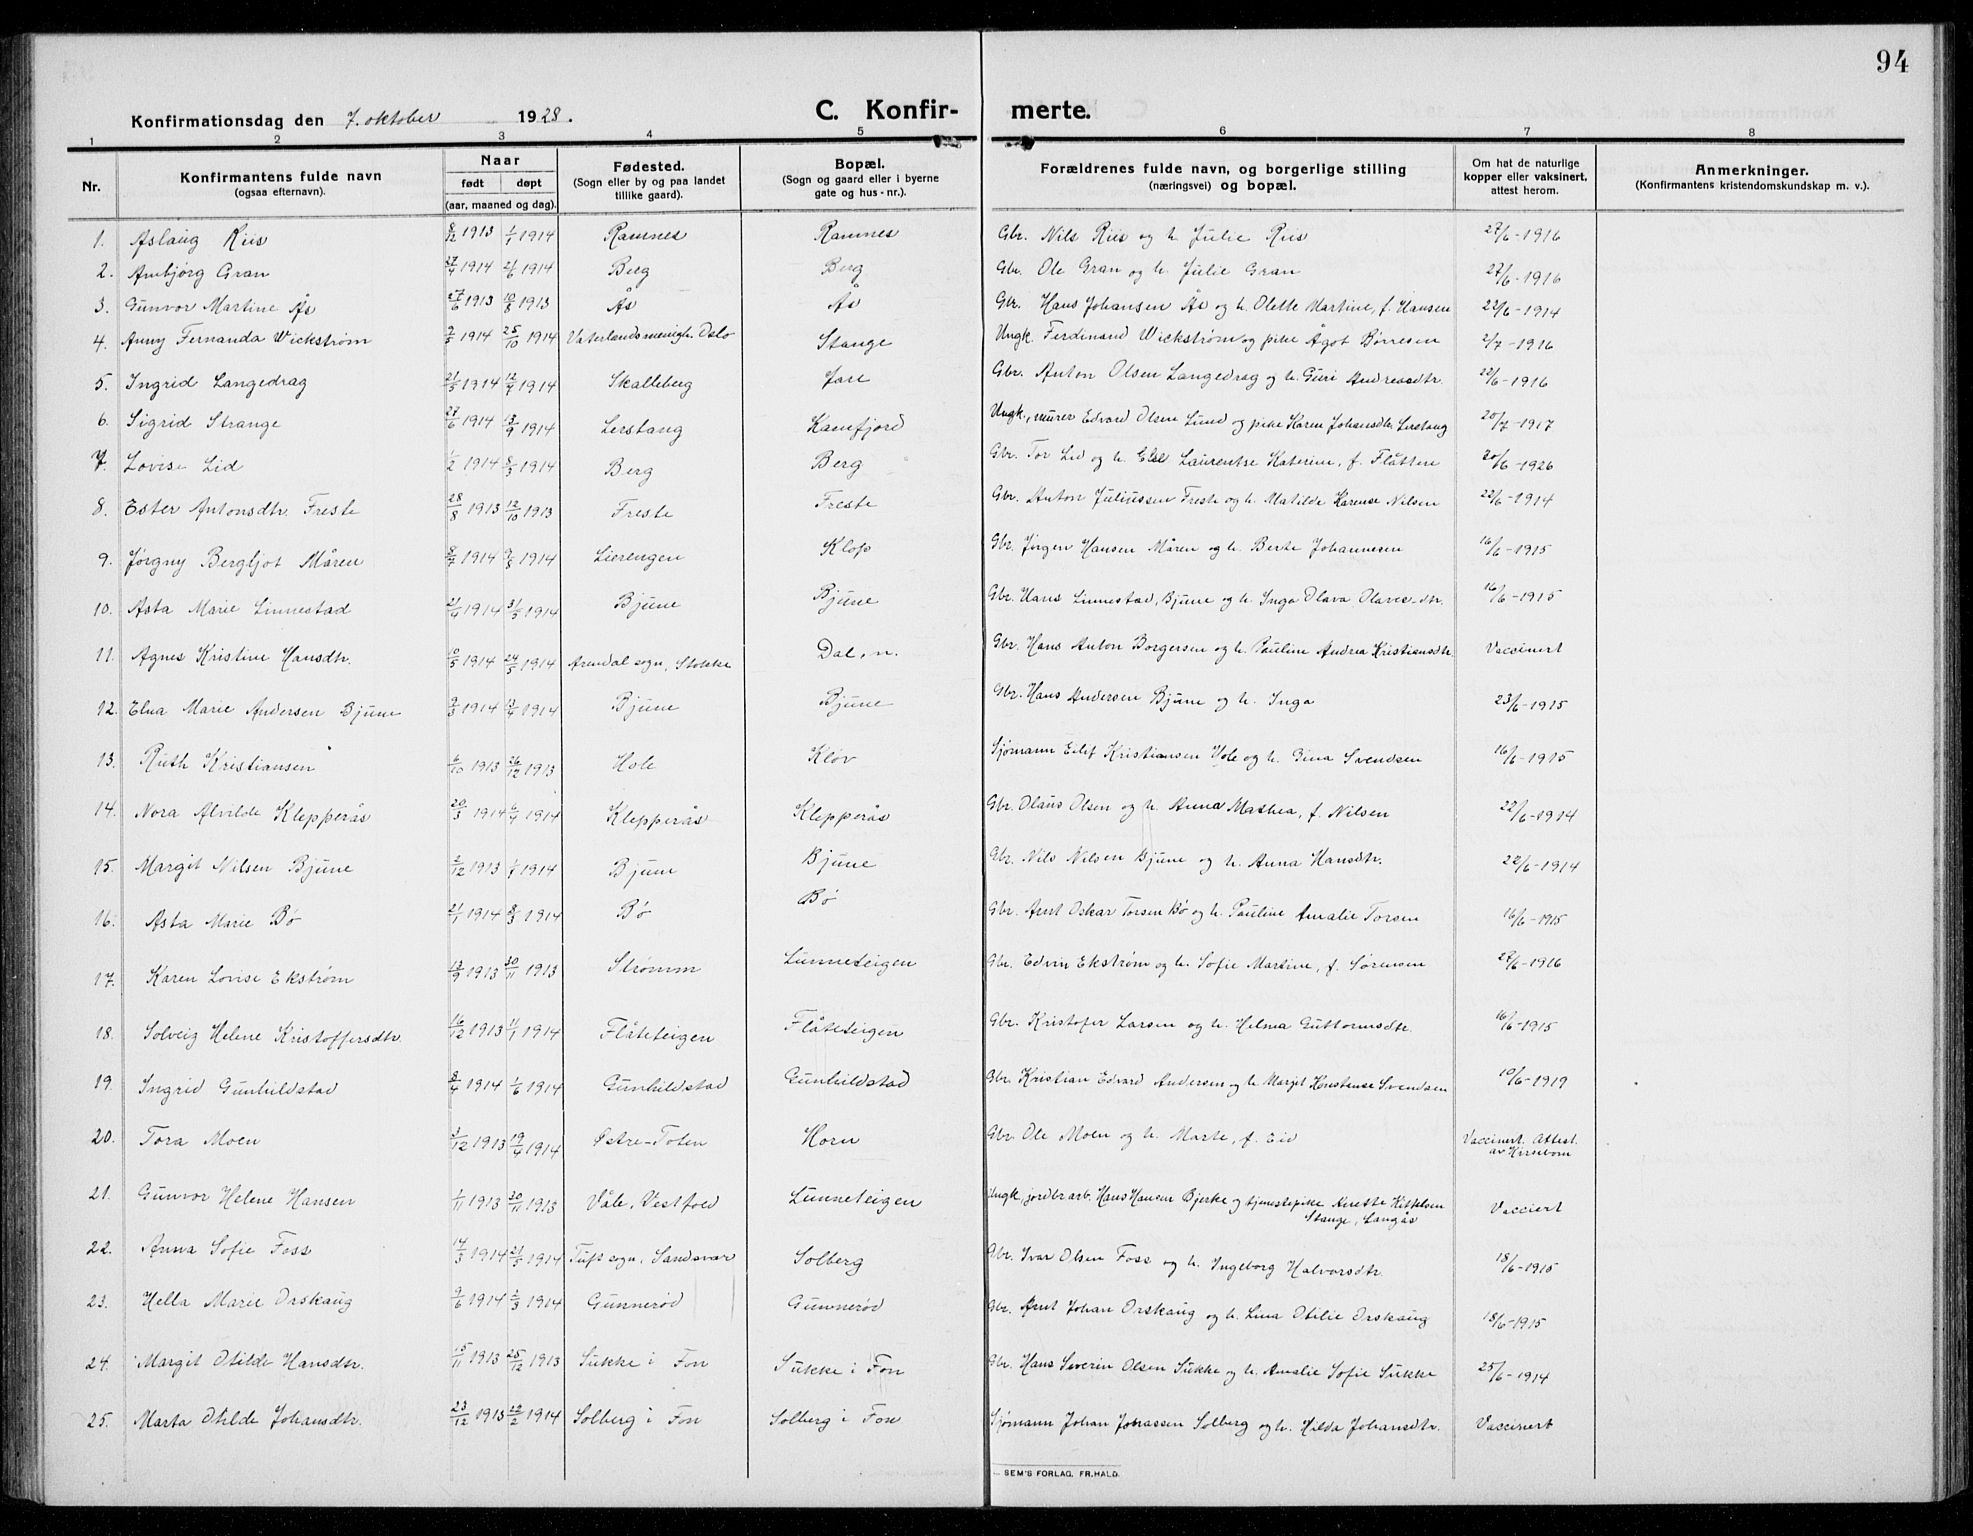 94
Konfirmationsdag den 7. oktober 1928. C. Konfirmerte.
1 2 3 4 5 6 7 8
Nr. Konfirmantens fulde navn (ogsaa efternavn). Naar født døpt (aar, maaned og dag). Fødested. (Sogn eller by og paa landet tillike gaard). Bopæl. (Sogn og gaard eller i byerne gate og hus-nr.). Forældrenes fulde navn, og borgerlige stilling (næringsvei) og bopæl. Om hat de naturlige kopper eller vaksinert, attest herom. Anmerkninger. (Konfirmantens kristendomskundskap m. v.).
1. Aslaug Riis 8/12 1913 1/1 1914 Ramnes Ramnes Gbr. Nils Riis og h. Julie Riis 27/6-1916
2. Ambjørg Gran 27/4 1914 21/6 1914 Berg Berg Gbr. Ole Gran og h. Julie Gran 27/6-1916
3. Gunvor Martine Ås 27/6 1913 10/8 1913 Ås Ås Gbr. Hans Johansen Ås og h. Olette Martine, f. Hansen 22/6-1914
4. Anny Fernanda Wickstrøm 1914 25/10 1914 Vaterlands menigh. Oslo Stange Ungk. Ferdinand Wickstrøm og pike Ågot Børresen 2/7-1916
5. Ingrid Langedrag 21/5 1914 12/7 1914 Skalleberg Jare Gbr. Anton Olsen Langedrag og h. Guri Andreasdtr. 22/6-1916
6. Sigrid Strange 27/6 1914 13/9 1914 Lerstang Kamfjord Ungk., murer Edvard Olsen Lund og pike Karen Johansdtr. Lerstang 20/7-1917
7. Lovise Lid 1/2 1914 8/3 1914 Berg Berg Gbr. Tor Lid og h. Else Laurentse Katerine, f. Flåttene 20/6-1926
8. Ester Antonsdtr. Freste 28/8 1913 12/10 1913 Freste Freste Gbr. Anton Juliussen Freste og h. Matilde Karense Nilsen 22/6-1914
9. Jørgny Bergljot Måren 8/7 1914 9/8 1914 Lierengen Klop Gbr. Jørgen Hansen Måren og h. Berte Johannesen 16/6-1915
10. Asta Marie Linnestad 21/4 1914 31/5 1914 Bjune Bjune Gbr. Hans Linnestad, Bjune og h. Inga Olava Olavesdtr. 16/6-1915
11. Agnes Kristine Hansdtr. 10/5 1914 24/5 1914 Arendal sogn, Stokke Dal, n. Gbr. Hans Anton Borgersen og h. Pauline Andrea Kristiansdtr. Vaccinert
12. Elna Marie Andersen Bjune 1914 1914 Bjune Bjune Gbr. Hans Andersen Bjune og h. Inga 23/6-1915
13. Ruth Kristiansen 6/10 1913 26/12 1913 Hole Kløv Sjømann Eilef Kristiansen Hole og h. Gina Svendsen 16/6-1915
14. Nora Alvilde Klepperås 20/3 1914 1914 Klepperås Klepperås Gbr. Olaus Olsen og h. Anna Mathea, f. Nilsen 22/6-1914
15. Margit Nilsen Bjune 1913 1914 Bjune Bjune Gbr. Nils Nilsen Bjune og h. Anna Hansdtr. 22/6-1914
16. Asta Marie Bø 21/1 1914 8/3 1914 Bø Bø Gbr. Arnt Oskar Torsen Bø og h. Pauline Amalie Torsen 16/6-1915
17. Karen Lovise Ekstrøm 13/9 1913 30/11 1913 Strømm Lunneteigen Gbr. Edvin Ekstrøm og h. Sofie Martine, f. Sørensen 27/6-1916
18. Solveig Helene Kristoffersdtr. 16/12 1913 11/1 1914 Flåteteigen Flåteteigen Gbr. Kristofer Larsen og h. Helma Guttormsdtr. 16/6-1915
19. Ingrid Gunhildstad 8/4 1914 1/6 1914 Gunhildstad Gunhildstad Gbr. Kristian Edvard Andersen og h. Margit Konstanse Svendsen 19/6-1919
20. Tora Moen 3/12 1913 19/4 1914 Østre-Toten Horn Gbr. Ole Moen og h. Marte, f. Eid Vaccinert. Attest. av Kirsebom
21. Gunvor Helene Hansen 1/11 1913 30/11 1913 Våle, Vestfold Lunneteigen Ungk., jordbr.arb. Hans Hansen Bjerke og tjenestepike Anette Kittelsen Stange, Langås Vacciert
22. Anna Sofie Foss 14/3 1914 21/5 1914 Tuft sogn, Sandsvær Solberg Gbr. Ivar Olsen Foss og h. Ingeborg Halvorsdtr. 18/6-1915
23. Hella Marie Orskaug 1914 1914 Gunnerød Gunnerød Gbr. Arnt Johan Orskaug og h. Lina Otilie Orskaug 18/6-1915
24. Margit Otilde Hansdtr. 15/11 1913 25/12 1913 Sukke i Fon Sukke i Fon Gbr. Hans Severin Olsen Sukke og h. Amalie Sofie Sukke 25/6-1914
25. Marta Otilde Johansdtr. 23/12 1913 1914 Solberg i Fon Solberg i Fon Sjømann Johan Johassen Solberg og h. Hilda Johansdtr. Vaccinert
SEM'S FORLAG, FR. HALD.